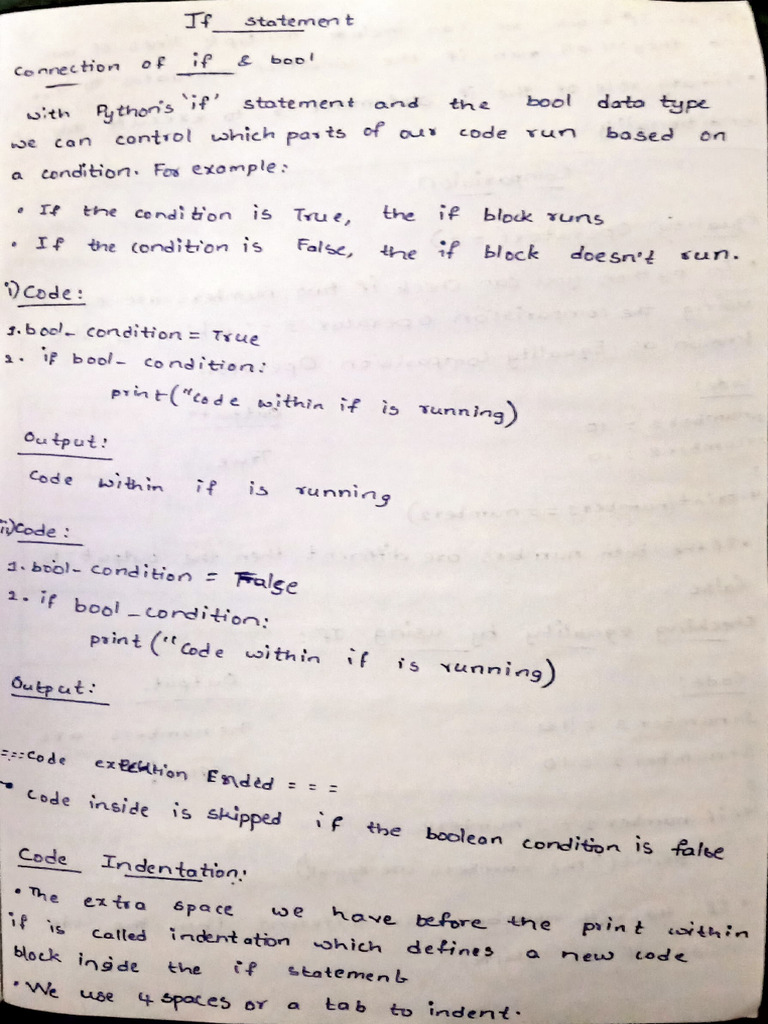 If statement
Connection of if & bool
with Python's 'if' statement and the bool data type
we can control which parts of our code run based on
a condition. For example:
• If the condition is True, the if block runs
• If the condition is False, the if block doesn't run.
i) Code:
1. bool_condition = True
2. if bool_condition:
print("Code within if is running)
Output:
Code within if is running
ii) Code:
1. bool_condition = False
2. if bool_condition:
print("Code within if is running)
Output:
===Code execution Ended = = =
• Code inside is skipped if the boolean condition is false
Code Indentation:
• The extra space we have before the print within
if is called indentation which defines a new code
block inside the if statement
• We use 4 spaces or a tab to indent.